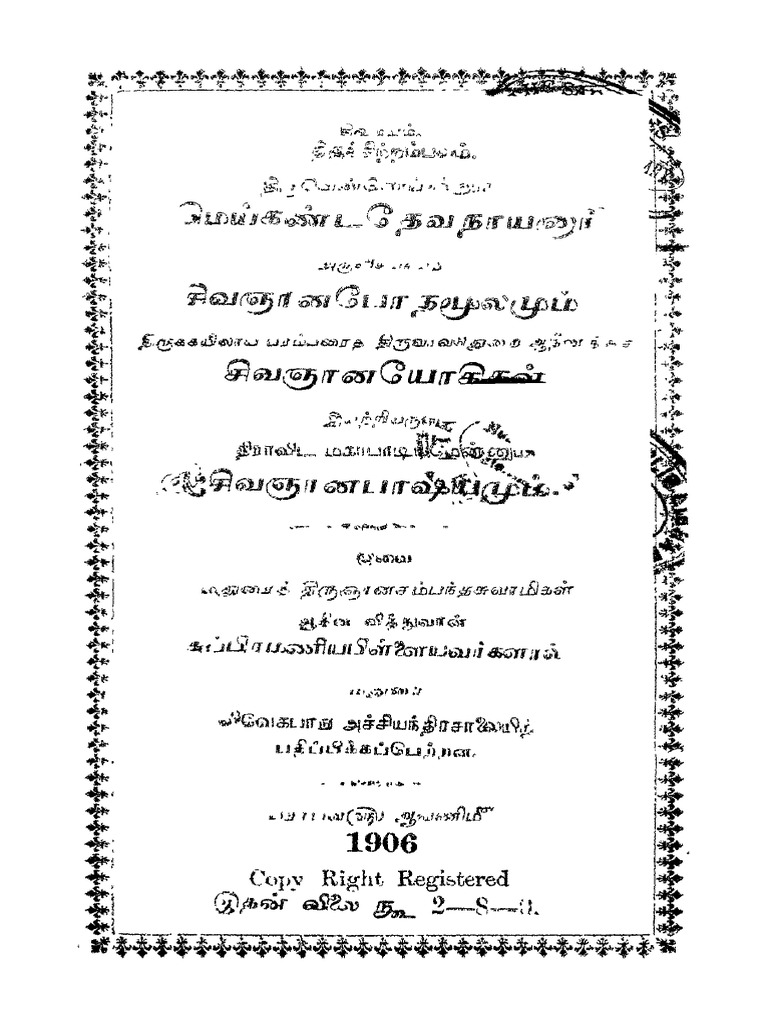 சிவமயம்.
திருச் சிற்றம்பலம்.
திருவெண்ணெய்நல்லூர்
மெய்கண்டதேவநாயனார்
அருளிச்செய்த
சிவஞானபோதமூலமும்
திருக்கயிலாய பரம்பரைத் திருவாவடுதுறை ஆதீனத்துச்
சிவஞானயோகிகள்
இயற்றியருளிய
திராவிட மகாபாடியமென்னும்
சிவஞானபாஷ்யமும்.
இவை
மதுரைத் திருஞானசம்பந்தசுவாமிகள்
ஆதின வித்துவான்
சுப்பிரமணியபிள்ளையவர்களால்
மதுரை
விவேகபாநு அச்சியந்திரசாலையிற்
பதிப்பிக்கப்பெற்றன.
பராபவ௵ ஆவணி௴
1906
Copy Right Registered
இதன் விலை ரூ 2—8—0.